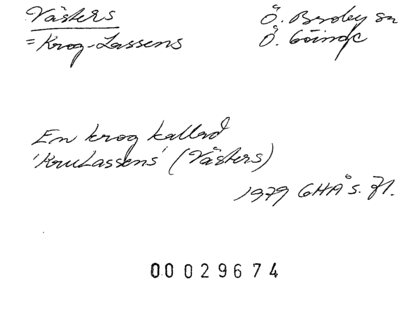 Västers
= Krog-Lassens
Ö. Broby sn
Ö. Göinge
En krog kallad
'KrouLassens' (Västers)
1979 GHÅ s. 71.
00029674